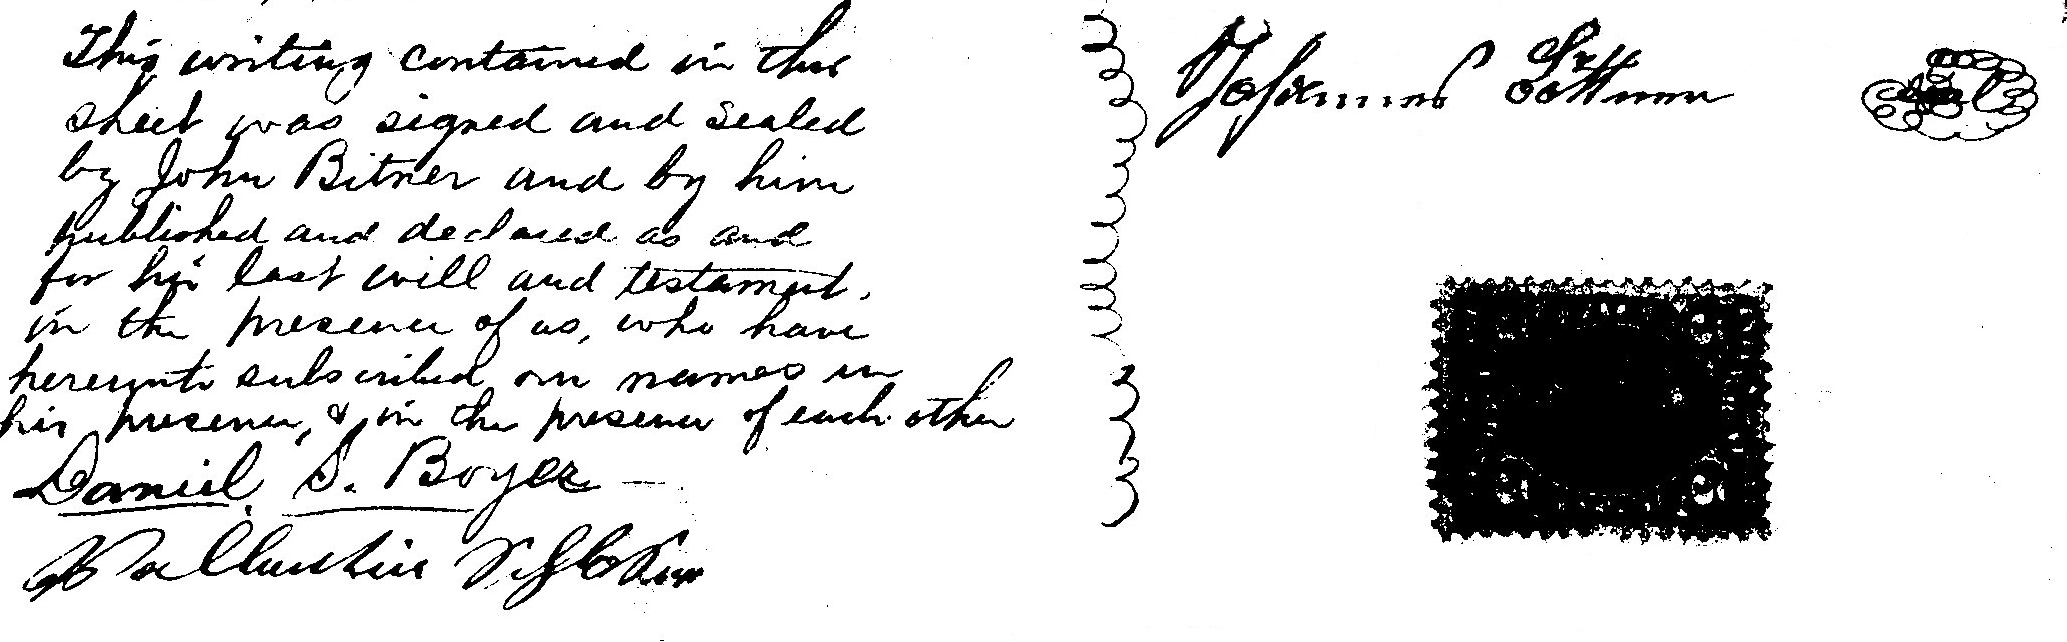 This writing contained in this
sheet was signed and sealed
by John Bitner and by him
published and declared as and
for his last will and testament,
in the presence of us, who have
hereunto subscribed our names in
his presence, & in the presence of each other
Daniel S. Boyer
Johannes